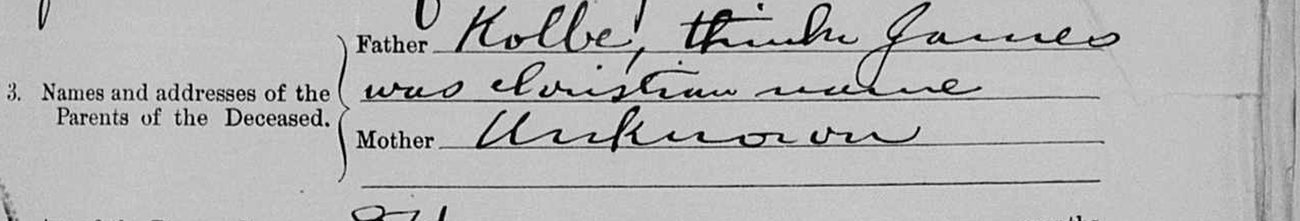 Father Kolbe, think James
3. Names and addresses of the was Christian name
Parents of the Deceased.
Mother Unknown